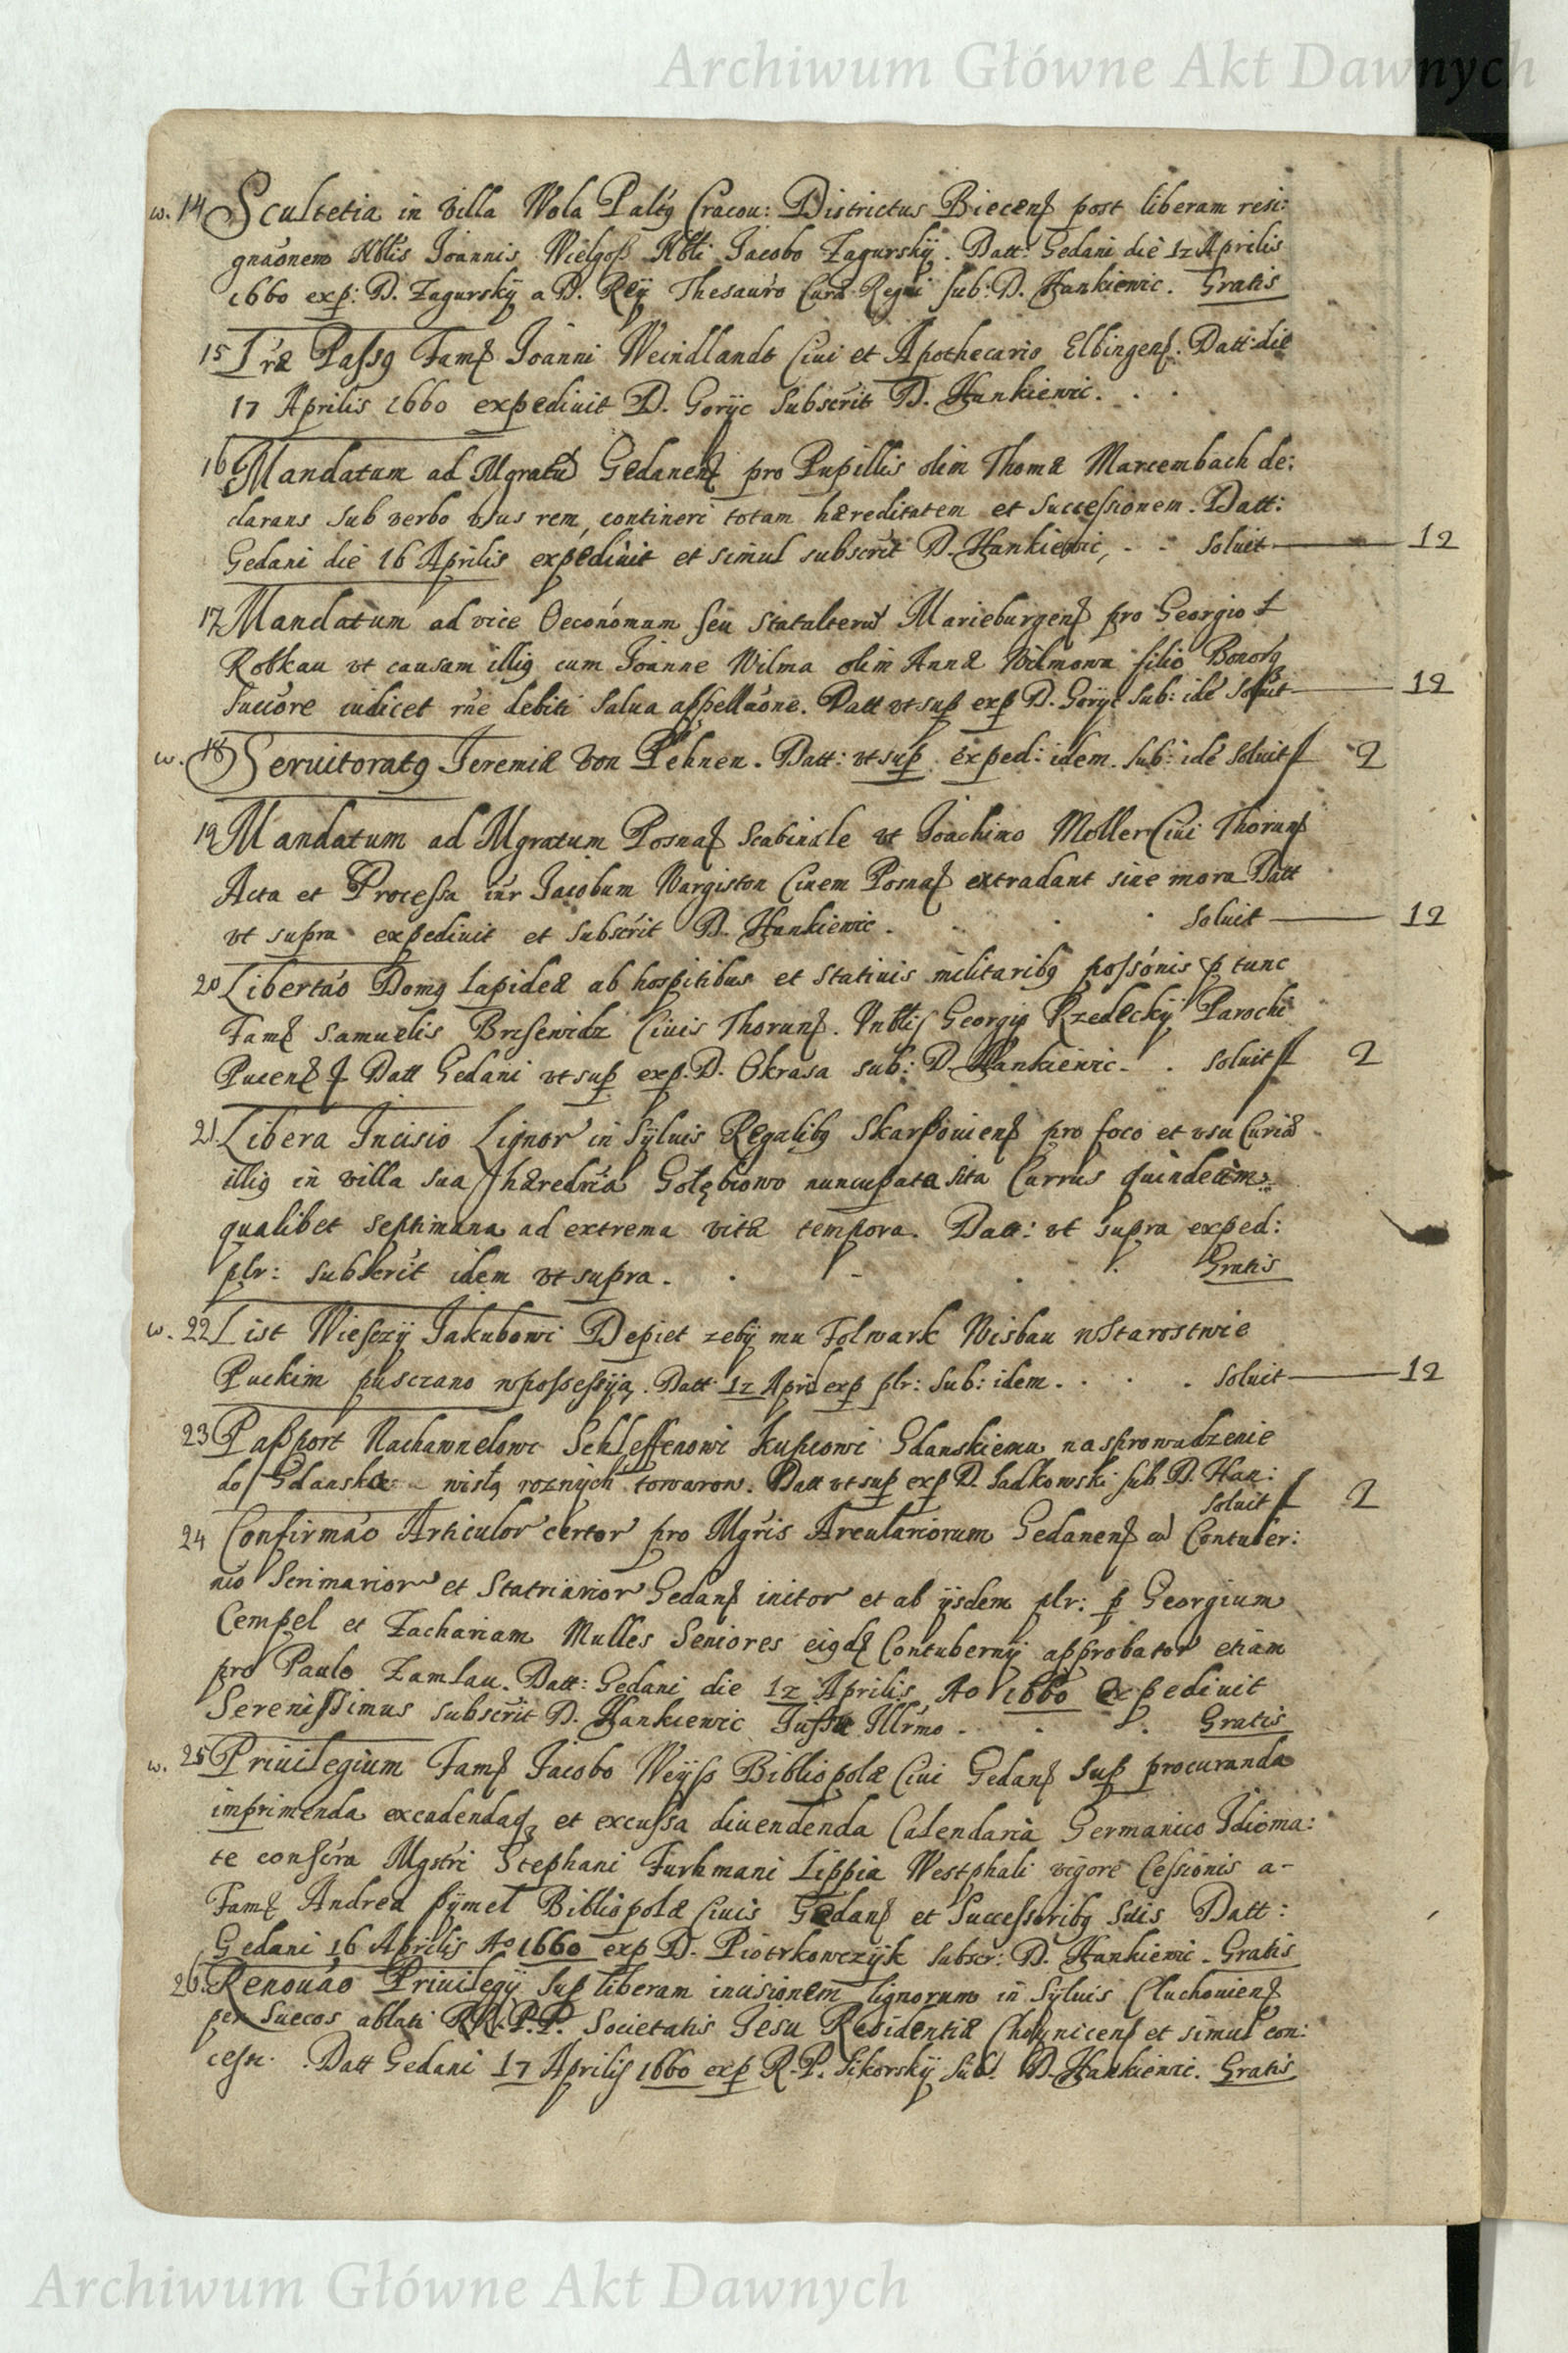 Archiwum Główne Akt Dawnych
w. 14 Scultetia in villa Wola Paltg Cracou: Districtus Biecens post liberam resi:
gnaonem Nblis Joannis Wielgoß Nbli Jacobo Zagurskÿ. Datt: Gedani die 12 Aprilis
1660 exp: D. Zagurskÿ a D. Reÿ Thesauro Cura Regni sub: D. Hankiewic. Gratis
15 Lræ Passg Fam Joanni Weindlandt Ciui et Apothecario Elbingens. Datt: die
17 Aprilis 1660 expediuit D. Gorÿc Subscrit D. Hankiewic. . .
16 Mandatum ad Mgratu Gedanens pro Pupillis olim Thomæ Marcembach de:
clarans sub verbo vsus rem contineri totam hæreditatem et Successionem. Datt:
Gedani die 16 Aprilis expediuit et simul subscrit D. Hankiewic, - - Soluit 12
17 Mandatum ad vice Oeconomum seu Statalteru Marieburgens pro Georgio
Robkau vt causam illig cum Joanne Wilma olim Annæ Wilmowa filio Bonorg
Succore iudicet rne debiti Salua appellaone. Datt vt sup exp D. Gorÿc Sub: ide Soluit 12
w. 18 Seruitoratg Jeremiæ Von Pehnen. Datt: vt sup exped: idem. Sub: ide Soluit # 2
19 Mandatum ad Mgratum Posnas Scabinale vt Joachimo Moller Ciui Thoruns
Acta et Processa intr Jacobum Wargiston Ciuem Posnas extradant sine mora Datt
vt supra expediuit et Subscrit D. Hankiewic. . . . Soluit 12
20 Libertao Domg Lapideæ ab hospitibus et Statiuis militaribg possonis p tunc
Fam Samuelis Bresewidz Ciuis Thoruns. Vnblis Georgio Rzedeckÿ Parochi
Pucens Datt Gedani vt sup exp. D. Okrasa sub: D. Hankiewic. . Soluit # 2
21. Libera Incisio Lignor in Sÿluis Regalibg Skarßouiens pro foco et vsu Curiæ
illig in villa sua hæredria Gołębiowo nuncupata sita Currus quindecim
qualibet septimana ad extrema vitæ tempora. Datt: vt supra exped:
plr: Subscrit idem vt supra. . - . . Gratis
w. 22 List Wieszÿ Jakubowi Depiet zebÿ mu Folwark Nisbau w Starostwie
Puckim pusczano w possessÿią. Datt 12 April exp plr: Sub: idem. . . . . Soluit 12
23 Paßport Nachawnelowi Schleffenowi Kupcowi Gdanskiemu na sprowadzenie
do Gdanska wisłą roznÿch towarow. Datt vt sup exp D. Sadkowski sub D. Han:
Soluit # 2
24 Confirmao Articulor certor pro Mgris Arculariorum Gedanens cu Contuber:
nio Scrimarior et Statriarior Gedans initor et ab ÿsdem plr: p Georgium
Cempel et Zachariam Mulles Seniores eigd Contubernÿ approbator etiam
pro Paulo Zamlau. Datt: Gedani die 12 Aprilis Ao 1660 Expediuit
Serenissimus subscrit D. Hankiewic Jussu Illrmo . . . Gratis
w. 25 Priuilegium Fam Jacobo Weÿss Bibliopolæ Ciui Gedans sup procuranda
imprimenda excudendaq et excussa diuendenda Calendaria Germanico Idioma:
te conscra Mgstri Stephani Furhmani Lippia Westphali vigore Cessionis a-
Fam Andrea Hÿmel Bibliopolæ Ciuis Gedans et Successoribg Suis Datt:
Gedani 16 Aprilis Ao 1660 exp D. Piotrkowczÿk subscr: D. Hankiewic. Gratis
26. Renouao Priuilegÿ sup liberam incisionem lignorum in Sÿluis Cluchouiens
per Suecos ablati RR. P.P. Societatis Jesu Residentiæ Choynicens et simul con:
cess. Datt Gedani 17 Aprilis 1660 exp R. P. Sikorskÿ Sub. D. Hankiewic. Gratis
Archiwum Główne Akt Dawnych